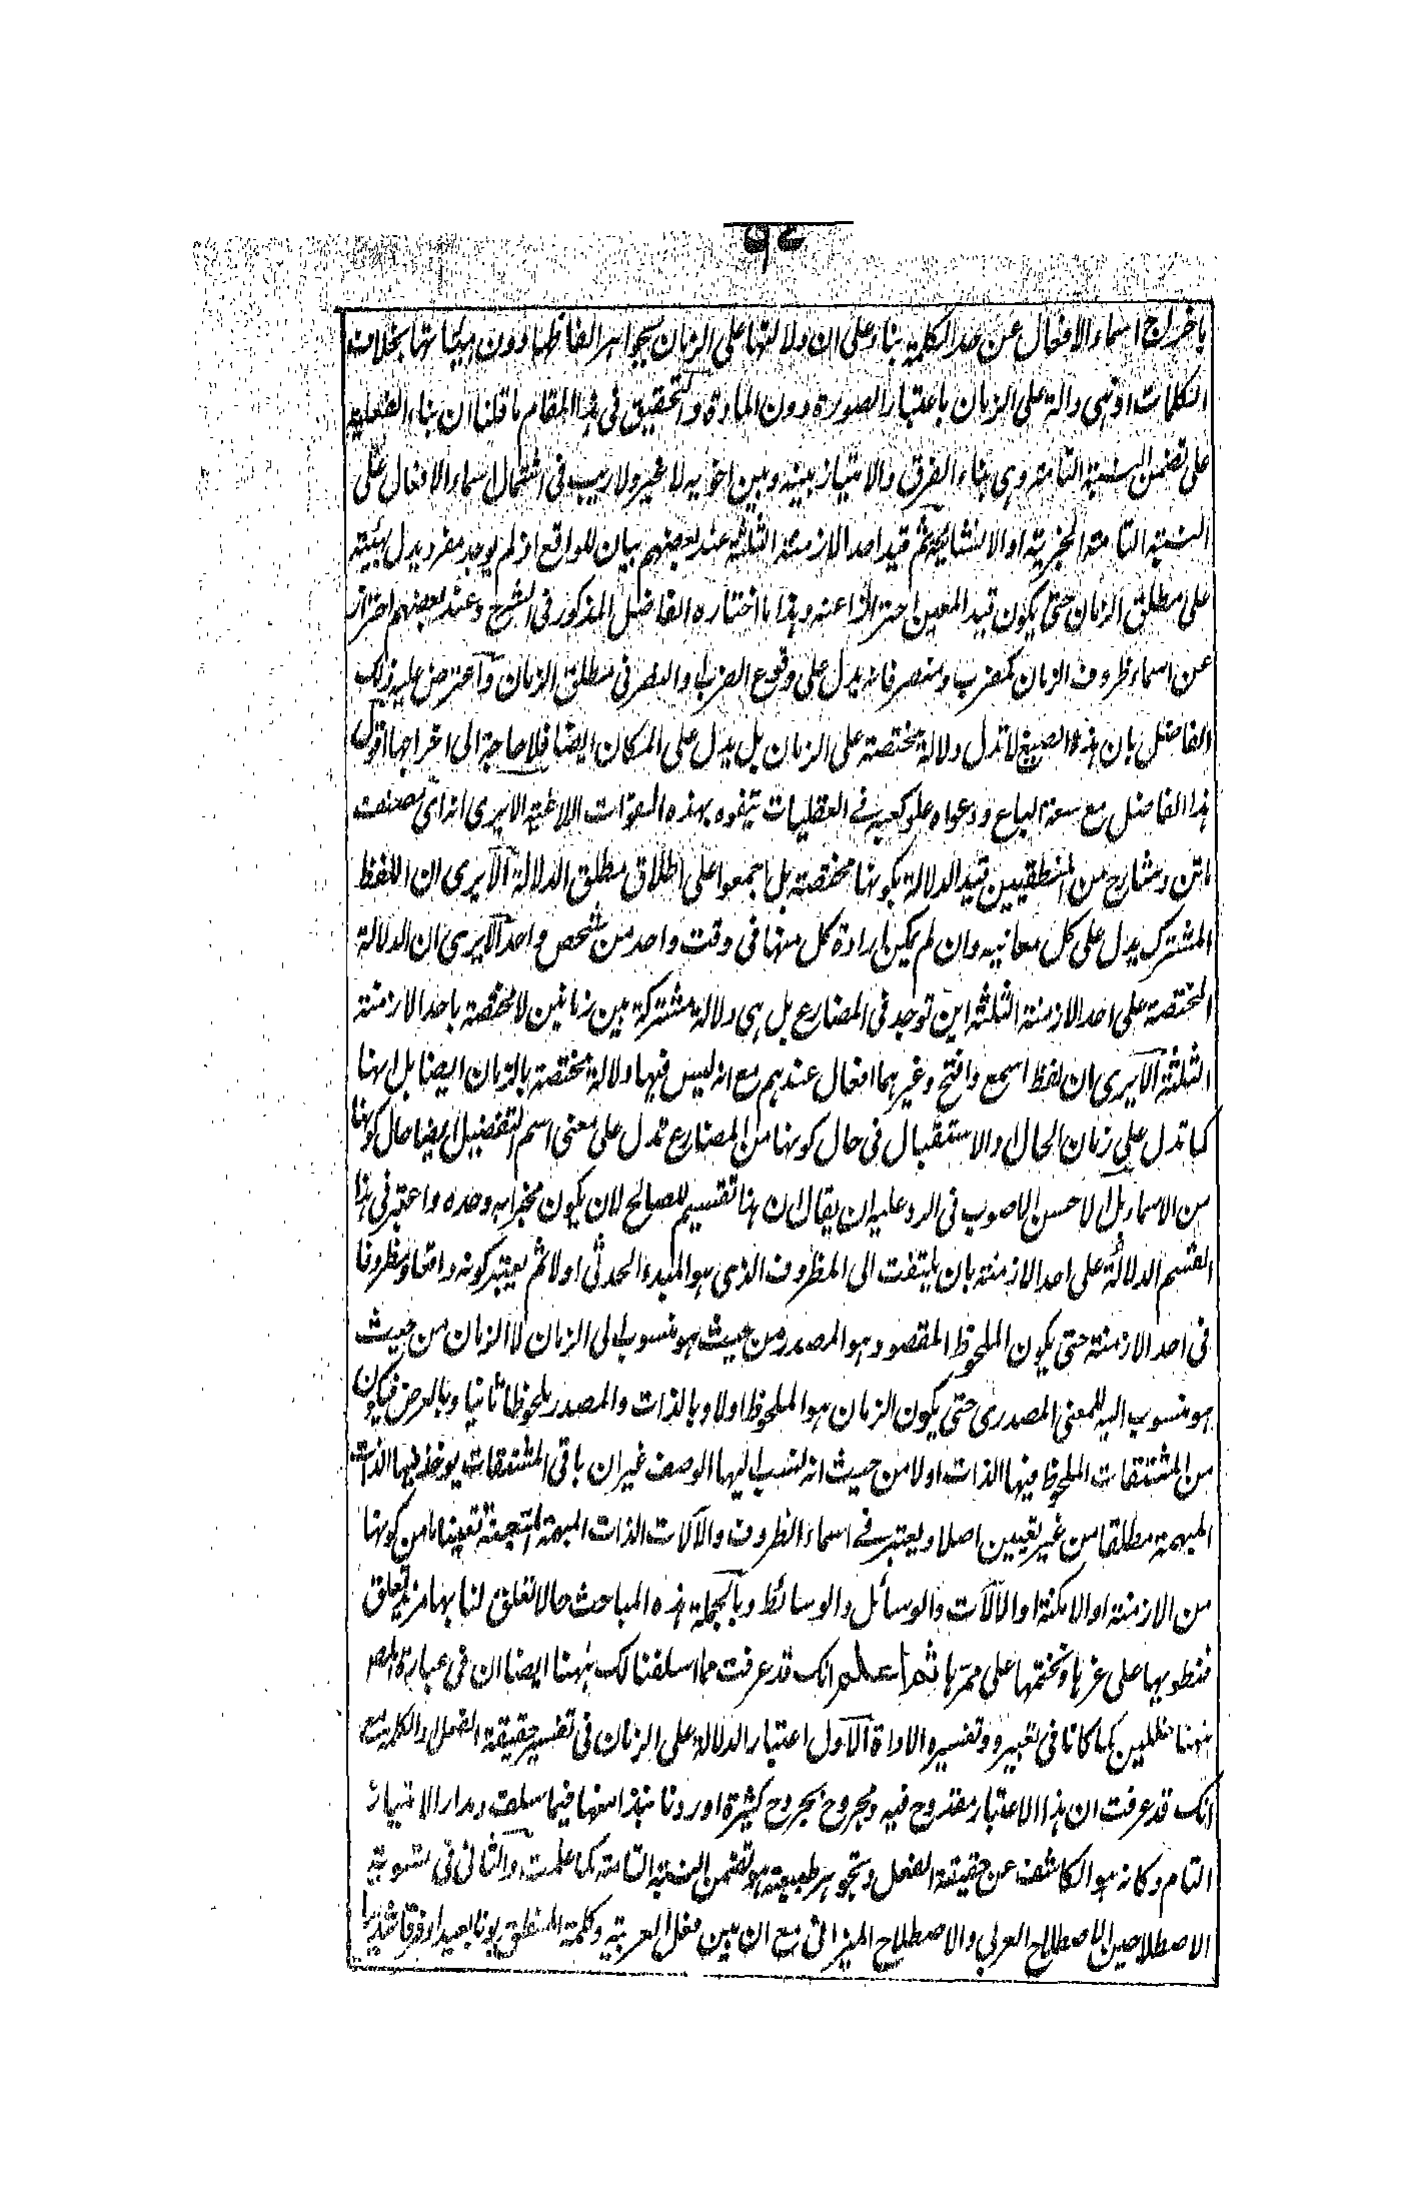 باخراج اسماء الافعال عن حد الكلمة بناء على ان دلالتها على الزمان بجواهر الفاظها دون هيئاتها بخلاف
الكلمات اذ هى دالة على الزمان باعتبار الصورة دون المادة والتحقيق فى هذا المقام ما قلنا ان بناء الفعلية
على تضمن النسبة التامة وهى بناء الفرق والامتياز بينه وبين اخويه لا غير ولا ريب فى اشتمال اسماء الافعال على
النسبة التامة الخبرية او الانشائية ثم قيد احد الازمنة الثلثة عند بعضهم بيان للواقع اذ لم يوجد مفرد يدل بهيئته
على مطلق الزمان حتى يكون قيد المعين احترازا عنه وهذا ما اختاره الفاضل المذكور فى الشرح وعند بعضهم احتراز
عن اسماء ظروف الزمان كمضرب ومنصر فانه يدل على وقوع الضرب والنصر فى مطلق الزمان واعترض عليه ذلك
الفاضل بان هذه الصيغ لا تدل دلالة مختصة على الزمان بل يدل على المكان ايضا فلا حاجة الى اخراجها اقول
هذا الفاضل مع سعة الباع ودعواه علو كعبه فى العقليات يتفوه بهذه الهفوات اللاغية الا يرى انه اى مصنف
ماتن وشارح من المنطقيين قيد الدلالة بكونها مختصة بل اجمعوا على اطلاق مطلق الدلالة الا يرى ان اللفظ
المشترك يدل على كل معانيه وان لم يمكن ارادة كل منها فى وقت واحد من شخص واحد الا يرى ان الدلالة
المختصة على احد الازمنة الثلثة اين توجد فى المضارع بل هى دلالة مشتركة بين زمانين لا مختصة باحد الازمنة
الثلثة الا يرى ان لفظ اسمع وافتح وغيرهما افعال عندهم مع انه ليس فيها دلالة مختصة بالزمان ايضا بل انها
كما تدل على زمان الحال او الاستقبال فى حال كونها من المضارع تدل على معنى اسم التفضيل ايضا حال كونها
من الاسماء بل الاحسن الاصوب فى الرد عليه ان يقال ان هنا تقسيم للصالح لان يكون مخبرا به وحده واعتبر فى هذا
القسم الدلالة على احد الازمنة بان يلتفت الى المظروف الذى هو المبدء الحدثى اولا ثم يعتبر كونه واقعا ومظروفا
فى احد الازمنة حتى يكون الملحوظ المقصود هو المصدر من حيث هو منسوب الى الزمان لا الزمان من حيث
هو منسوب اليه للمعنى المصدرى حتى يكون الزمان هو الملحوظ اولا وبالذات والمصدر ملحوظا ثانيا وبالعرض فيكون
من المشتقات الملحوظ فيها الذات اولا من حيث انه نسب اليها الوصف غير ان باقى المشتقات يوخذ فيها الذات
المبهمة مطلقا من غير تعيين اصلا ويعتبر فى اسماء الظروف والآلات الذات المبهمة المتعينة تعينا ما من كونها
من الازمنة او الامكنة او الآلات والوسائل والوسائط وبالجملة هذه المباحث حالا تعلق لنا بها مزيد تعلق
فنطويها على غرها ونختمها على ممرها ثم اعلم انك قد عرفت مما اسلفنا لك ههنا ايضا ان فى عبارة المصر
ههنا خللين كما كانا فى تعبيره وتفسيره الاداة الاول اعتبار الدلالة على الزمان فى تفسير حقيقة الفعل والكلمة مع
انك قد عرفت ان هذا الاعتبار مقدوح فيه ومجروح بجروح كثيرة اوردنا نبذا منها فيما سلف ومدار الامتياز
التام وكانه هو الكاشف عن حقيقة الفعل وتجوهر طبيعته هو تضمن النسبة التامة كما علمت والثانى فى تسوية
الاصطلاحين الاصطلاح العربى والاصطلاح الميزانى مع ان بين فعل العربية وكلمة المنطق بونا بعيدا وفرقا شديدا